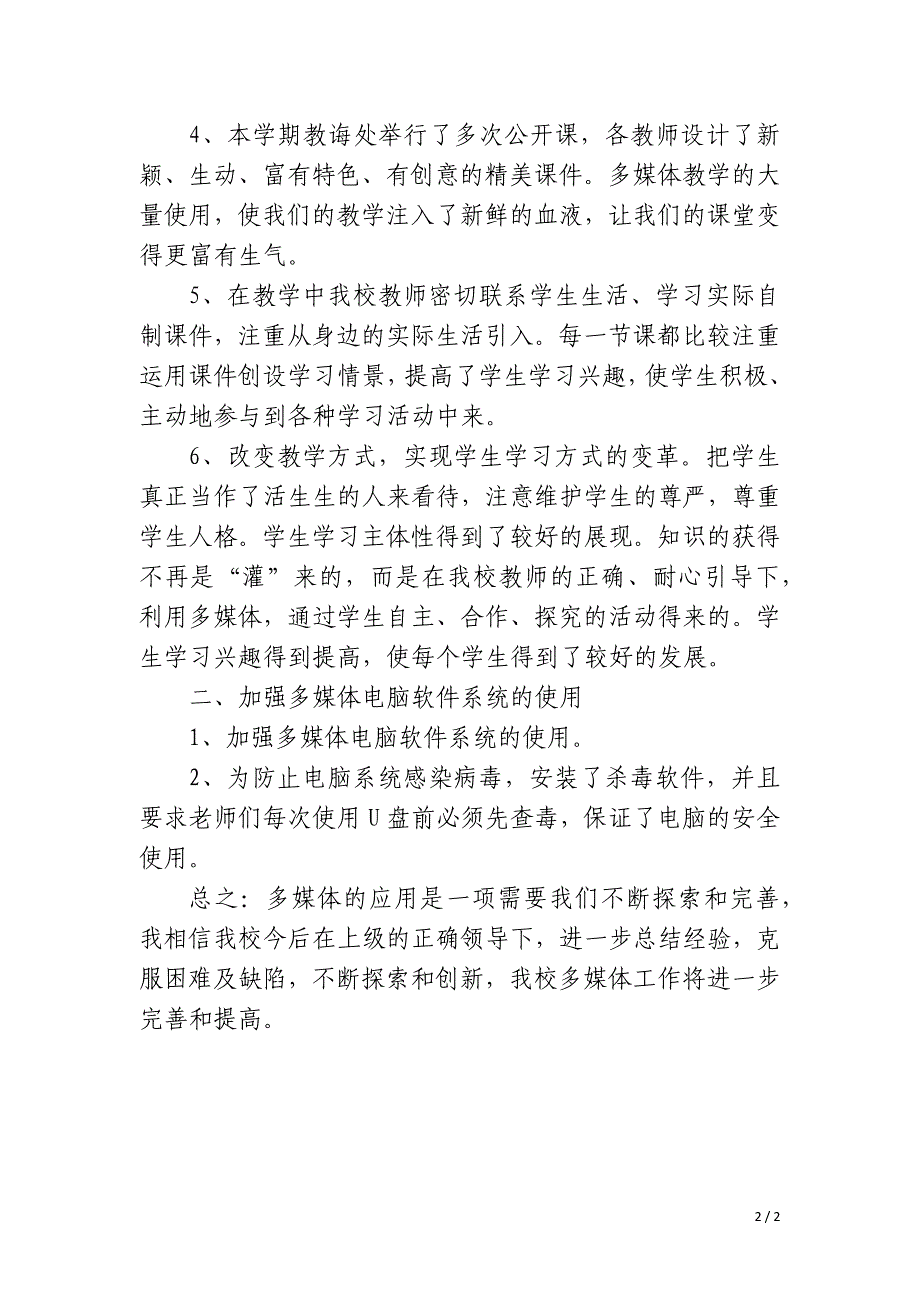 4、本学期教诲处举行了多次公开课，各教师设计了新
颖、生动、富有特色、有创意的精美课件。多媒体教学的大
量使用，使我们的教学注入了新鲜的血液，让我们的课堂变
得更富有生气。
5、在教学中我校教师密切联系学生生活、学习实际自
制课件，注重从身边的实际生活引入。每一节课都比较注重
运用课件创设学习情景，提高了学生学习兴趣，使学生积极、
主动地参与到各种学习活动中来。
6、改变教学方式，实现学生学习方式的变革。把学生
真正当作了活生生的人来看待，注意维护学生的尊严，尊重
学生人格。学生学习主体性得到了较好的展现。知识的获得
不再是“灌”来的，而是在我校教师的正确、耐心引导下，
利用多媒体，通过学生自主、合作、探究的活动得来的。学
生学习兴趣得到提高，使每个学生得到了较好的发展。
二、加强多媒体电脑软件系统的使用
1、加强多媒体电脑软件系统的使用。
2、为防止电脑系统感染病毒，安装了杀毒软件，并且
要求老师们每次使用 U 盘前必须先查毒，保证了电脑的安全
使用。
总之：多媒体的应用是一项需要我们不断探索和完善，
我相信我校今后在上级的正确领导下，进一步总结经验，克
服困难及缺陷，不断探索和创新，我校多媒体工作将进一步
完善和提高。
2 / 2